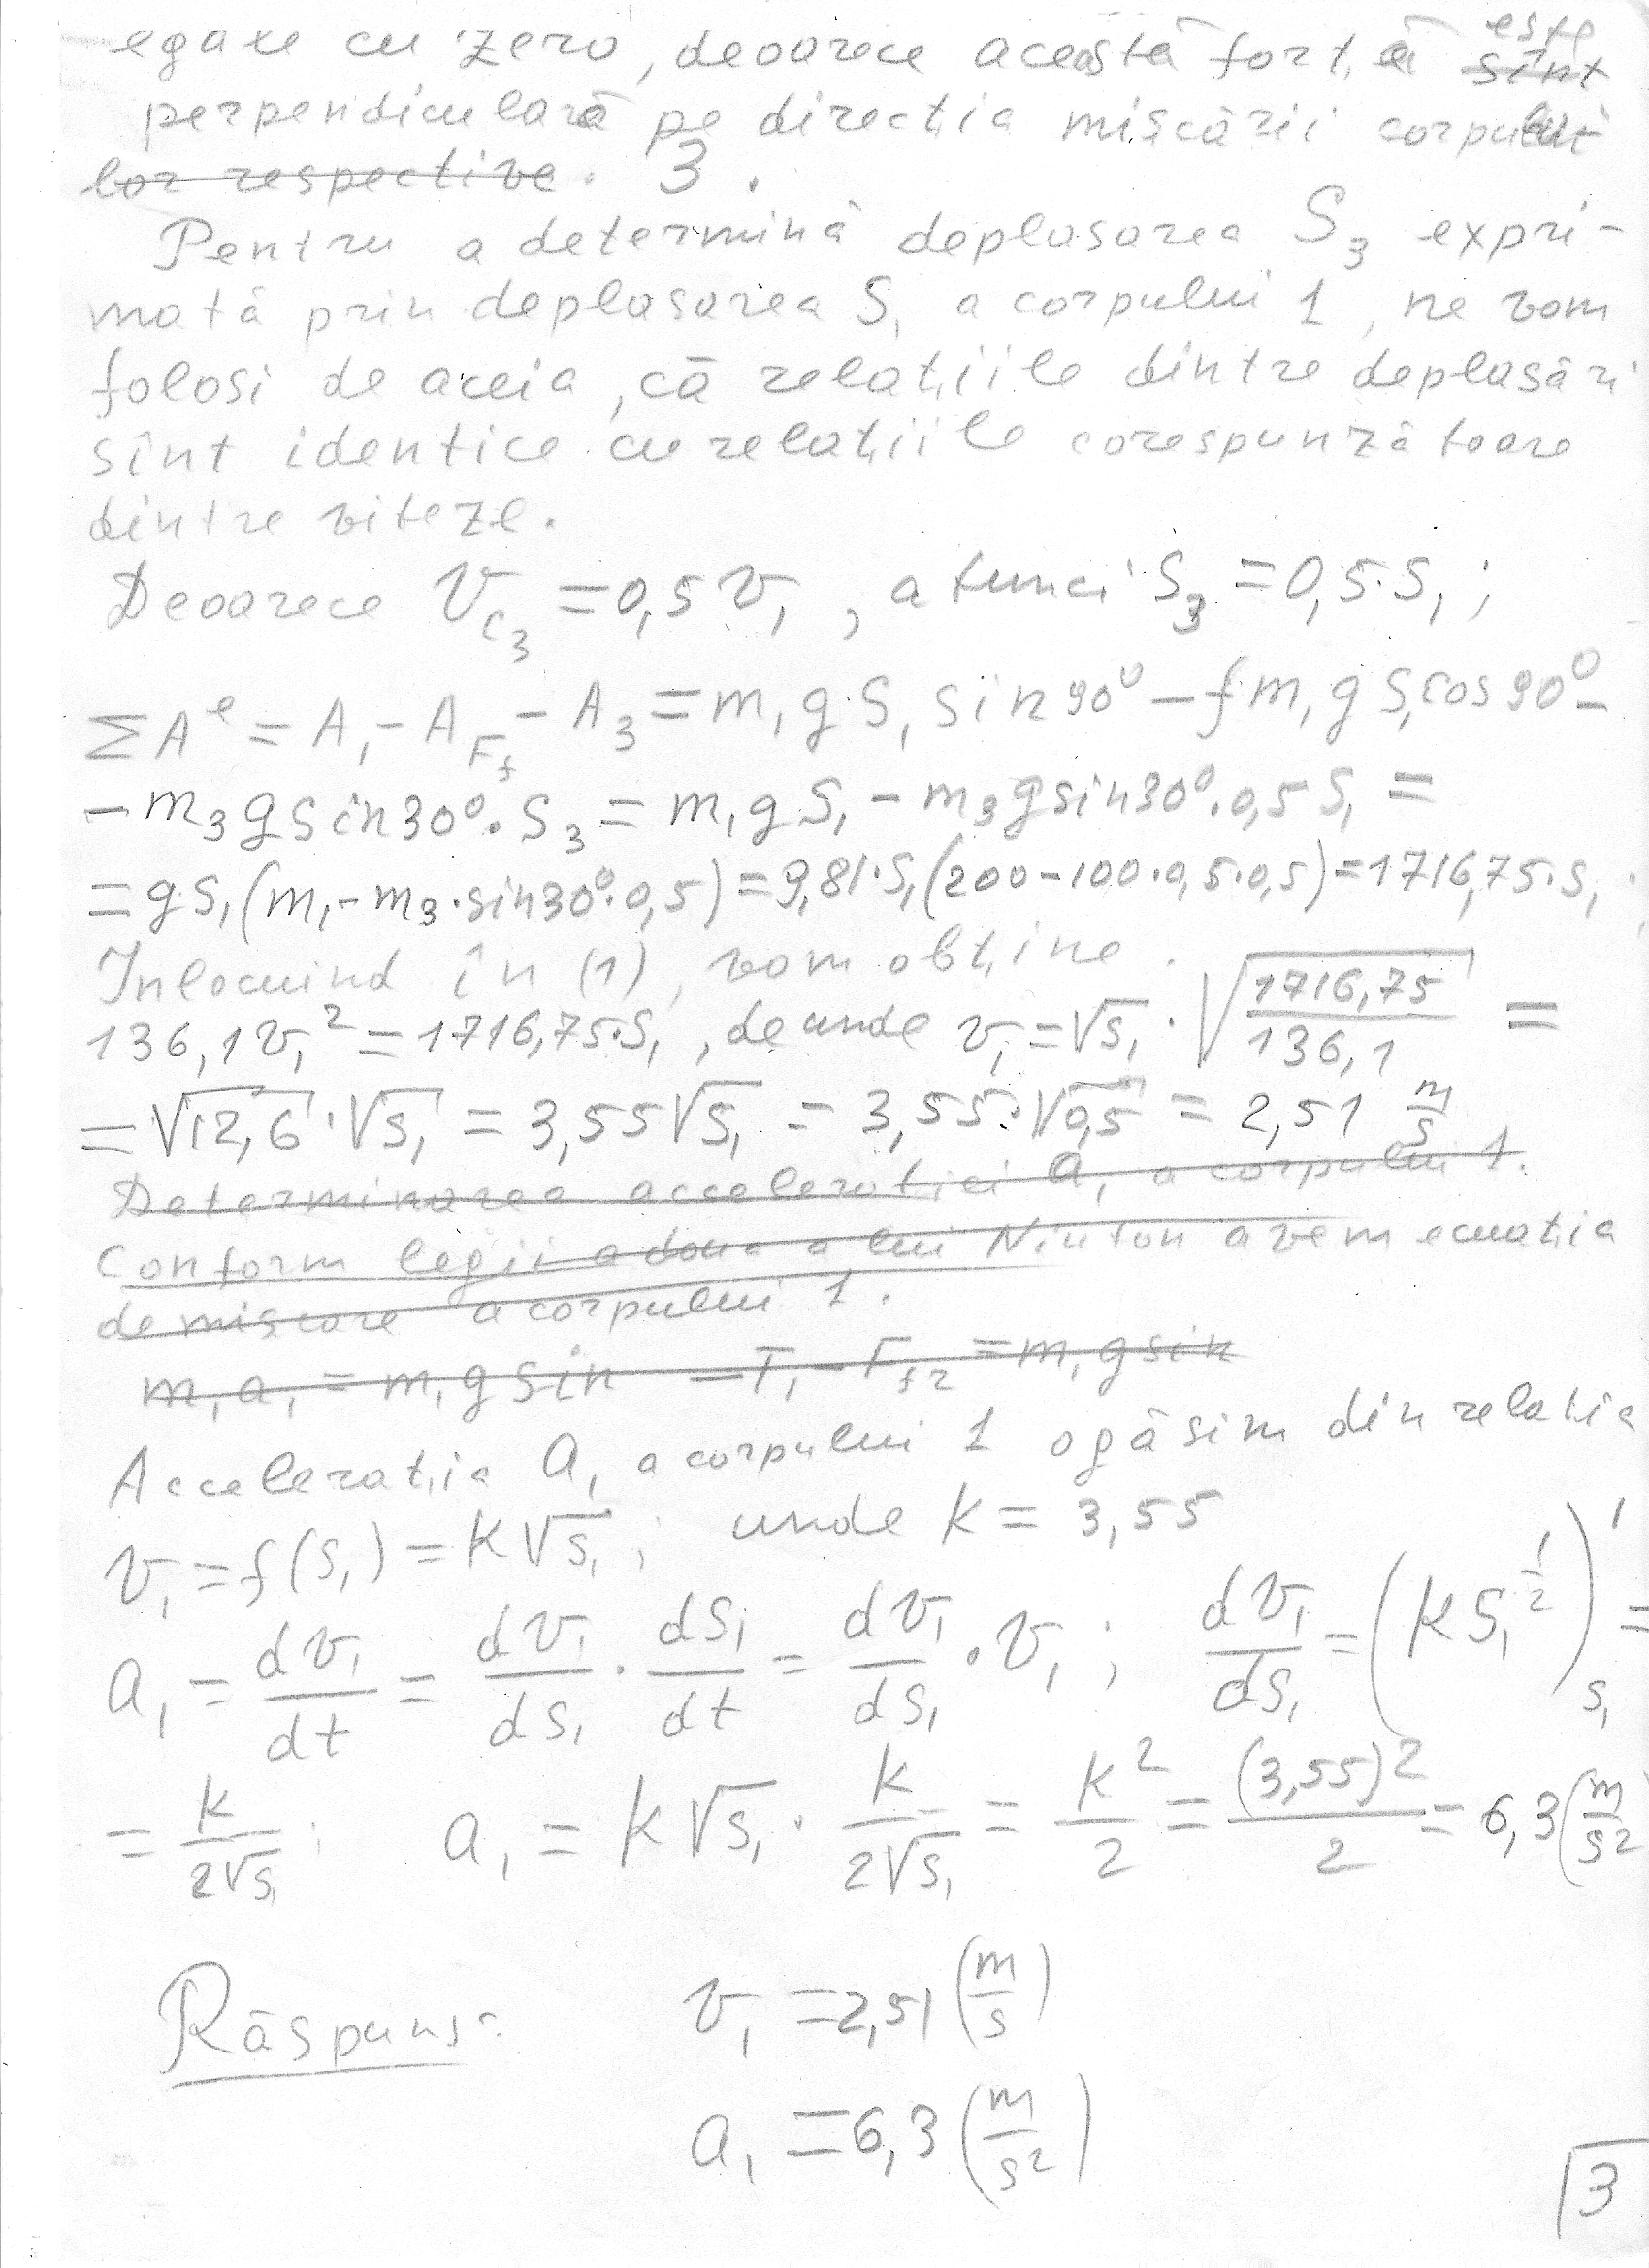 egale cu zero, deoarece această forță este ~~sînt~~
perpendiculară pe direcția mișcării corpului
~~lor respective~~. 3.
Pentru a determină deplasarea S₃ expri-
mată prin deplasarea S₁ a corpului 1, ne vom
folosi de aceia, că relațiile dintre deplasări
sînt identice cu relațiile corespunzătoare
dintre viteze.
Deoarece V_C₃ = 0,5 v₁, atunci S₃ = 0,5·S₁;
ΣAᵉ = A₁ - A_Ff - A₃ = m₁g·S₁ sin90⁰ - fm₁gS₁cos90⁰ -
- m₃g sin30⁰·S₃ = m₁gS₁ - m₃g sin30⁰·0,5 S₁ =
= gS₁(m₁ - m₃·sin30⁰·0,5) = 9,81·S₁(200-100·0,5·0,5) = 1716,75·S₁.
Inlocuind în (1), vom obține.
136,1v₁² = 1716,75·S₁, de unde v₁ = √S₁ · √(1716,75/136,1) =
= √12,6 · √S₁ = 3,55√S₁ = 3,55·√0,5 = 2,51 m/s
~~Determinarea accelerației a₁ a corpului 1.~~
~~Conform legii a doua a lui Niuton~~ avem ecuația
~~de mișcare a corpului 1.~~
~~m₁a₁ = m₁g sin - T₁ - F_f2 = m₁g sin~~
Accelerația a₁ a corpului 1 o găsim din relația
v₁ = f(S₁) = K√S₁; unde K = 3,55
a₁ = dv₁/dt = dv₁/dS₁ · dS₁/dt = dv₁/dS₁ · v₁; dv₁/dS₁ = (KS₁^½)'_S₁ =
= K/2√S₁; a₁ = K√S₁ · K/2√S₁ = K²/2 = (3,55)²/2 = 6,3 (m/s²
Răspuns: v₁ = 2,51 (m/s)
a₁ = 6,3 (m/s²)
3